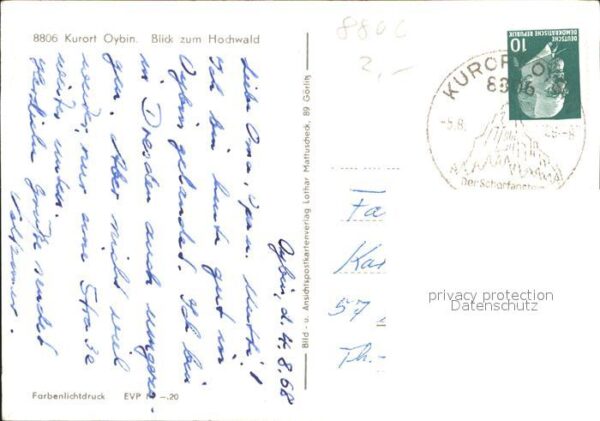 8806 Kurort Oybin. Blick zum Hochwald
8806
2,-
10
DEUTSCHE
DEMOKRATISCHE REPUBLIK
KURORT O
8806
-5.8.
-8
Der Scharfenstein
Oybin, d. 4.8.68
Liebe Oma, Opa u. Mutti!
Ich bin heute gut in
Oybin gelandet. Ich bin
in Dresden auch umgezo-
gen. Aber nicht viel
weiter, nur eine Straße
weiter unten.
Herzliche Grüße sendet
Volkmar.
Bild- u. Ansichtspostkartenverlag Lothar Mattuscheck, 89 Görlitz
Fa
Kar
57
Th.-
privacy protection
Datenschutz
Farbenlichtdruck EVP M -.20